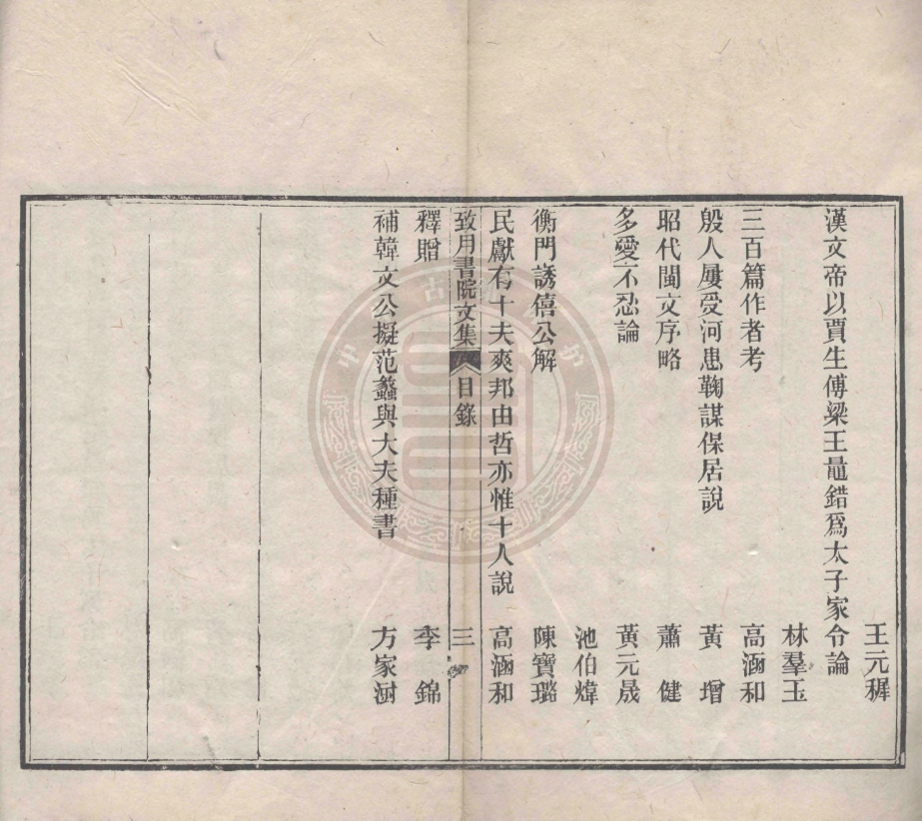 王元穉
漢文帝以賈生傅梁王鼂錯爲太子家令論
林羣玉
三百篇作者考 高涵和
殷人屢受河患鞠謀保居說 黃增
昭代閩文序略 蕭健
多愛不忍論 黃元晟
池伯煒
衡門誘僖公解 陳寶璐
民獻有十夫爽邦由哲亦惟十人說 高涵和
致用書院文集 目錄 三
釋贈 李錦
補韓文公擬范蠡與大夫種書 方家澍